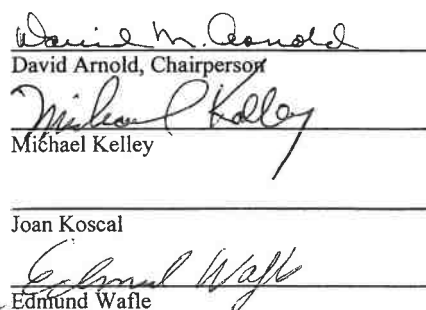 David M. Arnold
David Arnold, Chairperson
Michael Kelley
Michael Kelley
Joan Koscal
Edmund Wafle
Edmund Wafle